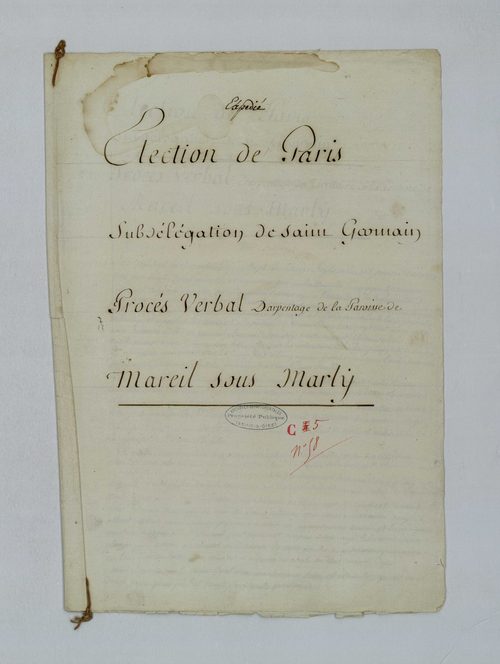 Expédié
Election de Paris
Subdélégation de saint Germain
Procés Verbal Darpentage de la Paroisse de
Mareil sous Marly
Propriété Publique
C 5
n° 58